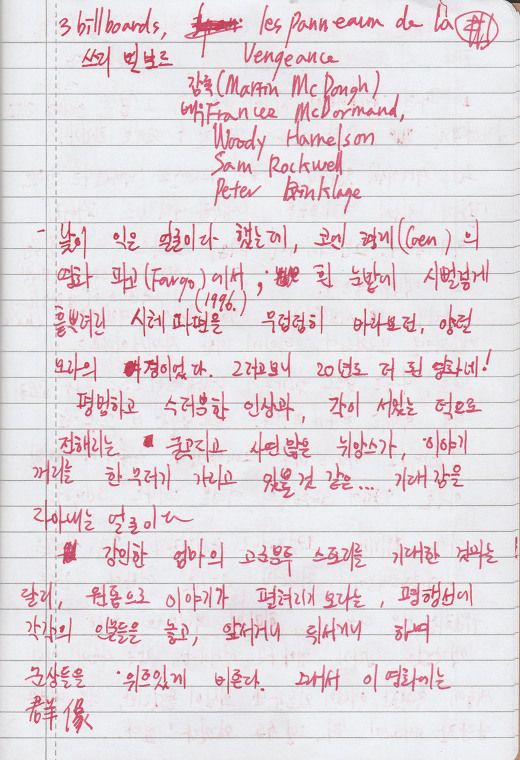 3 billboards, les panneaux de la #1
쓰리 빌보드 Vengeance
감독 (Martin McDongh)
배우 Frances McDormand,
Woody Harrelson
Sam Rockwell
Peter Dinklage
- 낯이 익은 얼굴이다 했는데, 코엔 형제 (Coen) 의
영화 파고 (Fargo) 에서, 흰 눈밭에 시뻘겋게
(1996.)
흩뿌려진 시체 파편을 무덤덤히 바라보던, 양턴
보라의 여경이었다. 그러고보니 20년도 더 된 영화네!
평범하고 수더분한 인상과, 각이 서있는 턱으로
전해리는 굵고 사연 많은 뉘앙스가, 이야기
꺼리를 한 무더기 가리고 있을 것 같은... 기대감을
자아내는 얼굴이다
강인한 엄마의 고군분투 스토리를 기대한 것과는
달리, 원톱으로 이야기가 펼쳐리기 보다는, 평행선에
각각의 인물들을 놓고, 앞서거니 뒤서거니 하며
군상들을 위트있게 비춘다. 그래서 이 영화에는
群像